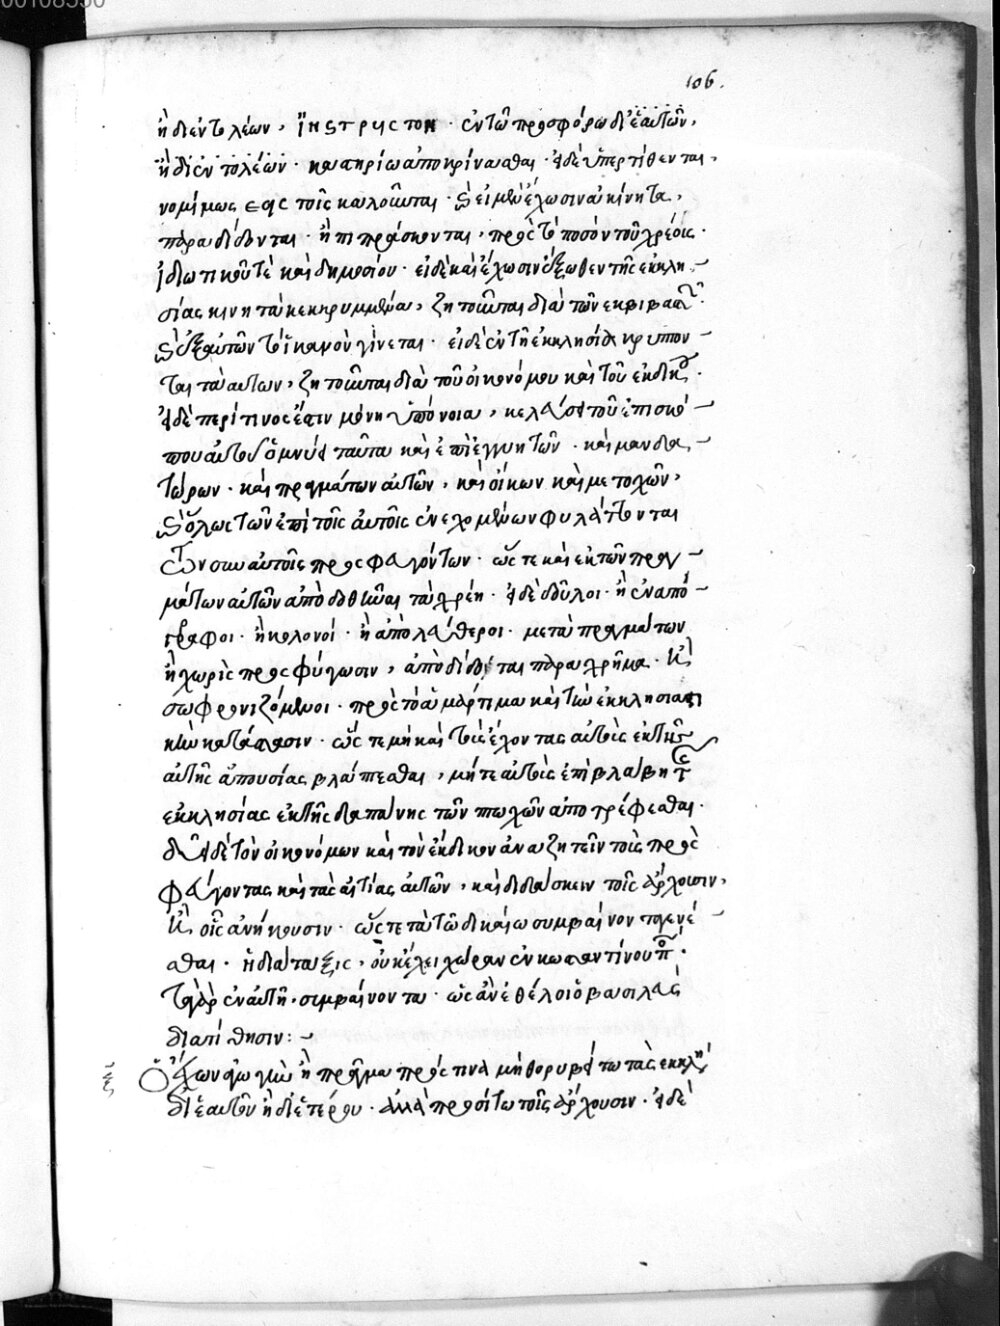 106.
ἢ δι' ἐντολέων, ΪΗSΤΡΥCΤΟΝ · ἐν τῶ προσφόρω δι' ἑαυτῶν,
ἢ δι' ἐντολέων · κριτηρίω ἀποκρίνασθαι · εἰ δὲ ὑπερτίθενται,
νομίμως τοῖς καλοῦνται · καὶ εἰ μὲν ἔχωσιν ἀκίνητα,
παραδίδονται · ἢ πιπράσκονται, πρὸς τὸ ποσὸν τοῦ χρέους ·
ἰδιωτικοῦ τὲ καὶ δημοσίου · εἰ δὲ καὶ ἔχωσιν ἔξωθεν τῆς ἐκκλη
σίας κινητὰ κεκρυμμένα, ζητοῦνται διὰ τῶν ἐκβιβαστ
καὶ ἐξ αὐτῶν τὸ ἱκανὸν γίνεται · εἰ δὲ ἐν τῆ ἐκκλησία κρύπτον
ται τὰ αὐτῶν, ζητοῦνται διὰ τοῦ οἰκονόμου καὶ τοῦ ἐκδίκ ·
εἰ δὲ περί τινος ἐστιν μόνη ὑπόνοια, κελεύσει τοῦ ἐπισκό
που αὐτοῦ ὀμνύει ταῦτα καὶ ἐπὶ ἐγγυητῶν · καὶ μανδα
τώρων · καὶ πραγμάτων αὐτῶν, καὶ οἴκων καὶ μετοχῶν,
καὶ ὅλως τῶν ἐπὶ τοῖς αὐτοῖς ἐνεχομένων φυλάττονται
τῶν σὺν αὐτοῖς προσφευγόντων · ὥστε καὶ ἐκ τῶν πραγ
μάτων αὐτῶν ἀποδοθῆναι τὰ χρέη · εἰ δὲ δοῦλοι · ἢ ἐναπό
γραφοι · ἢ κολονοί · ἢ ἀπολεύθεροι · μετὰ πραγμάτων
ἢ χωρὶς προσφύγωσιν, ἀποδίδονται παραχρῆμα · καὶ
σωφρονιζόμενοι · πρὸς τὸ ἁμάρτημα καὶ τὴν ἐκκλησιαστι
κὴν κατάστασιν · ὥστε μὴ καὶ τοὺς ἔχοντας αὐτοὺς ἐκ τῆς
αὐτῆς ἀπουσίας βλάπτεσθαι, μήτε αὐτοὺς ἐπὶ βλάβη τῆς
ἐκκλησίας ἐκ τῆς δαπάνης τῶν πτωχῶν ἀποτρέφεσθαι ·
δεῖ δὲ τὸν οἰκονόμων καὶ τὸν ἔκδικον ἀναζητεῖν τοὺς προσ
φεύγοντας καὶ τὰς αἰτίας αὐτῶν, καὶ διδάσκειν τοῖς ἄρχουσιν,
καὶ οἷς ἀνήκουσιν · ὥστε τὰ τῶ δικαίω συμβαίνοντα γενέ
σθαι · ἡ διάταξις, οὐκ ἔχει χώραν ἐν κωνσταντίνου π ·
τὰ γὰρ ἐν αὐτῆ συμβαίνοντα · ὡς ἂν ἐθέλοι ὁ βασιλεὺς
διατίθησιν :
Ὁ ἔχων ἀγωγὴν ἢ πρᾶγμα πρός τινα μὴ θορυβείτω τὰς ἐκκλη
δι' ἑαυτοῦ ἢ δι' ἑτέρου · ἀλλὰ προσίτω τοῖς ἄρχουσιν · εἰ δὲ